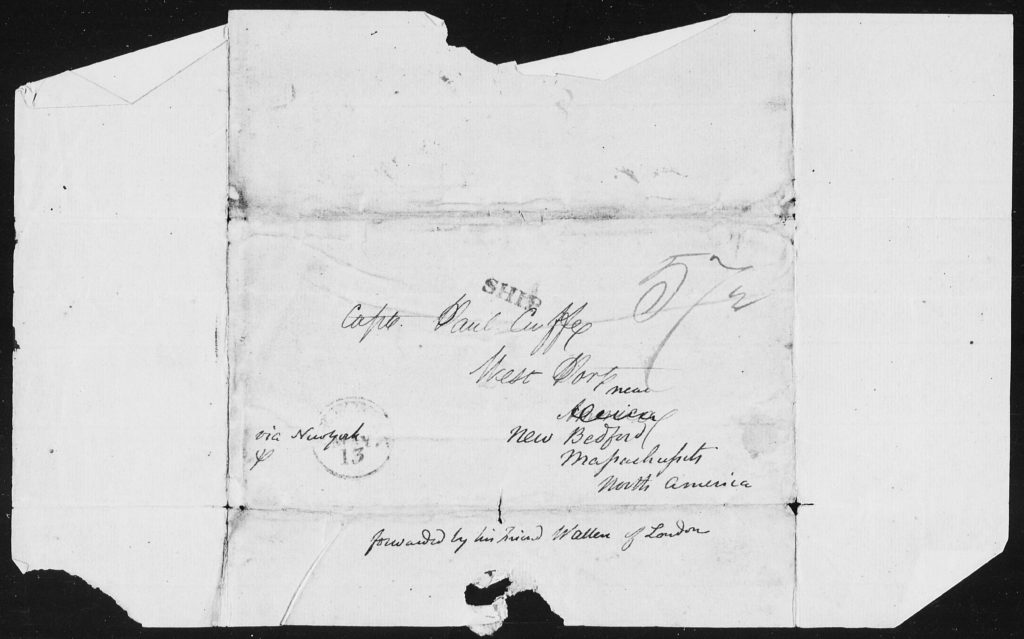 SHIP
57½
Capt. Paul Cuffe
West Port
near
America
New Bedford
Massachusetts
North America
via New york
&
13
forwarded by his Friend W Allen of London